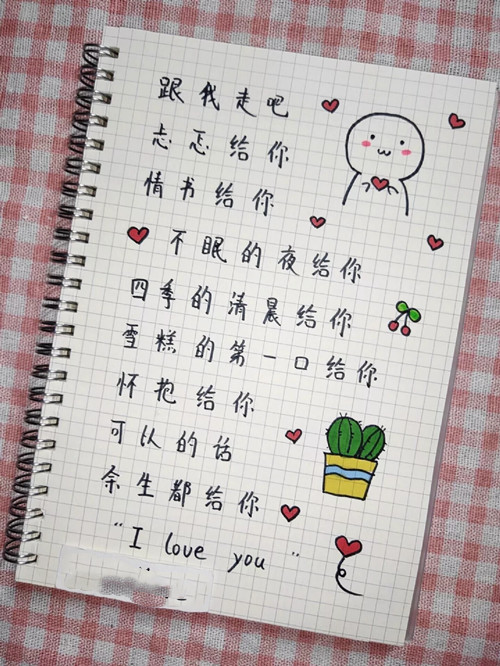 跟我走吧
忐忑给你
情书给你
不眠的夜给你
四季的清晨给你
雪糕的第一口给你
怀抱给你
可以的话
余生都给你
"I love you"